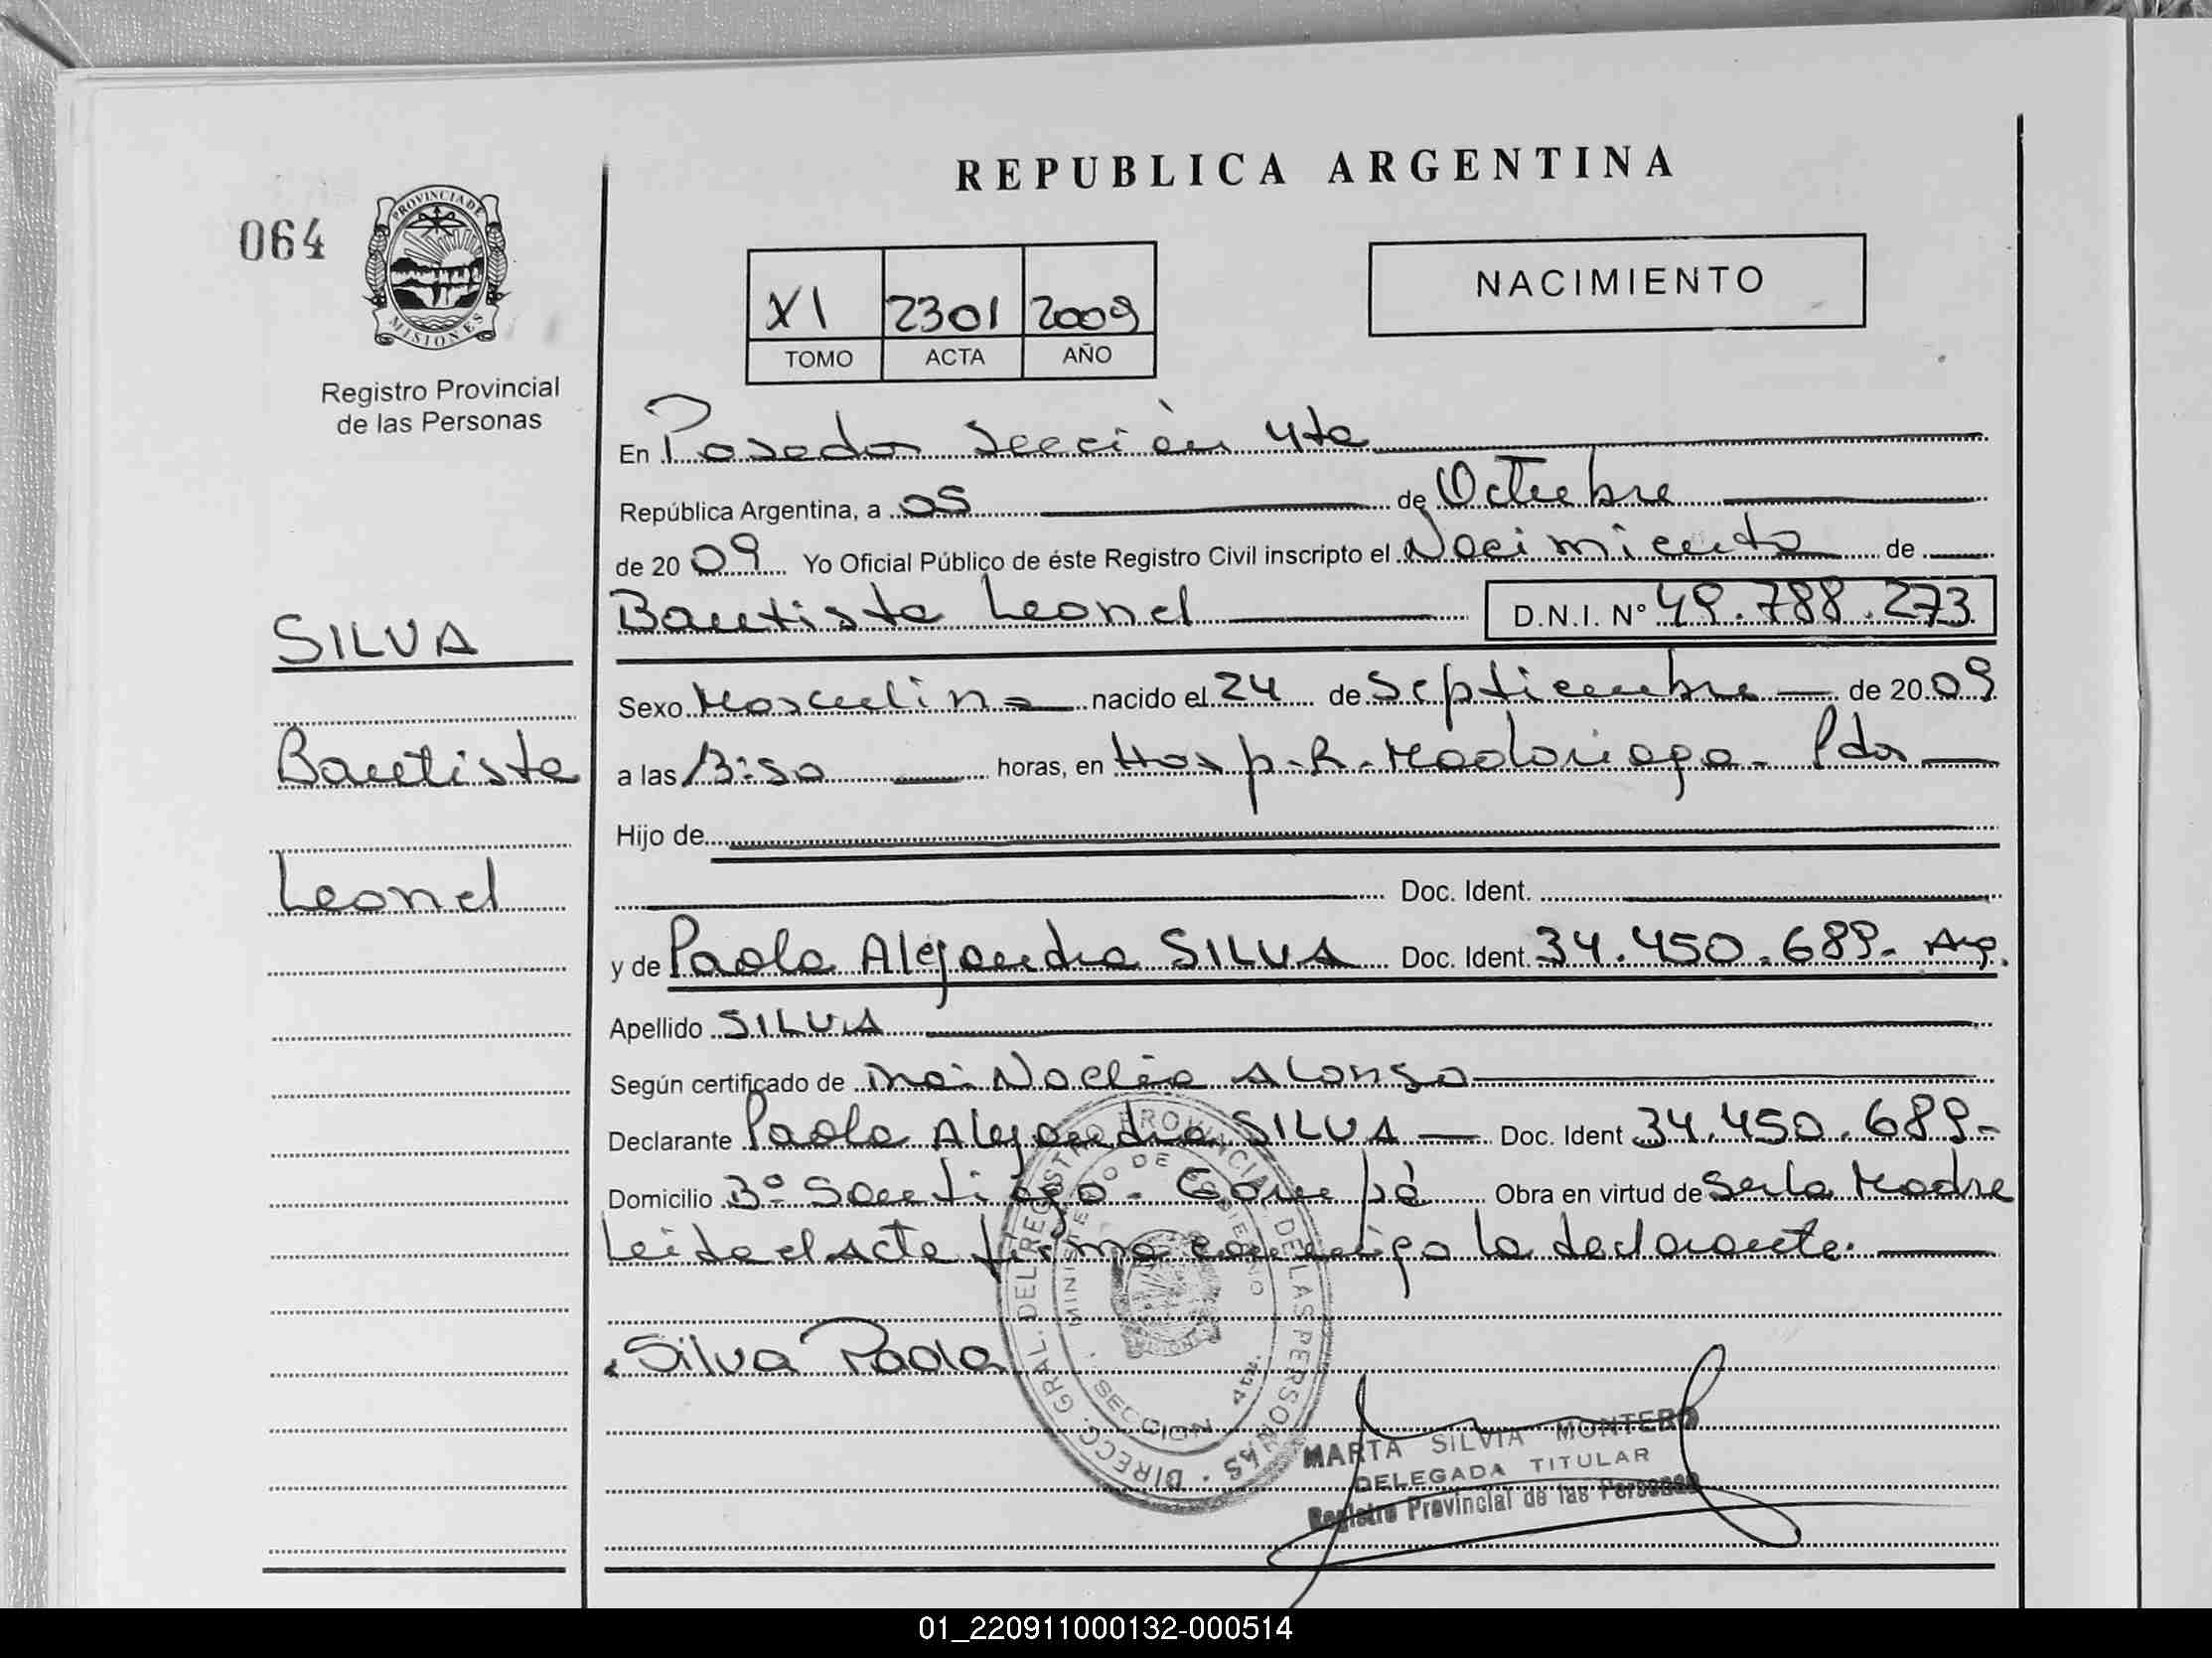 REPUBLICA ARGENTINA
064
PROVINCIA DE
MISIONES
Registro Provincial
de las Personas
XI 2301 2009
TOMO ACTA AÑO
NACIMIENTO
En Posadas Sección 4ta
República Argentina, a 05 de Octubre
de 2009 Yo Oficial Público de éste Registro Civil inscripto el Nacimiento de
Bautista Leonel D.N.I. Nº 49.788.273
SILVA
Bautista
Leonel
Sexo Masculino nacido el 24 de Septiembre de 2009
a las 13:50 horas, en Hosp. R. Madariaga - Pdas
Hijo de
Doc. Ident.
y de Paola Alejandra SILVA Doc. Ident. 34.450.689- Arg.
Apellido SILVA
Según certificado de Noelia Alonso
Declarante Paola Alejandra SILVA Doc. Ident 34.450.689-
Domicilio Bº Santiago - Garupá Obra en virtud de Ser la Madre
Leida el Acta firma conmigo la declarante.
DIRECC. GRAL. DEL REGISTRO PROVINCIAL DE LAS PERSONAS
MINISTERIO DE GOBIERNO
SECCION 4ta.
Silva Paola
MARTA SILVIA MONTERO
DELEGADA TITULAR
Registro Provincial de las Personas
01_220911000132-000514